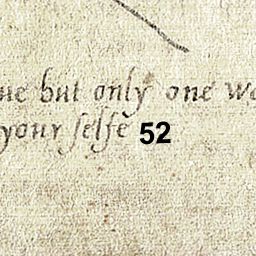 ue but only one wo
your selfe 52